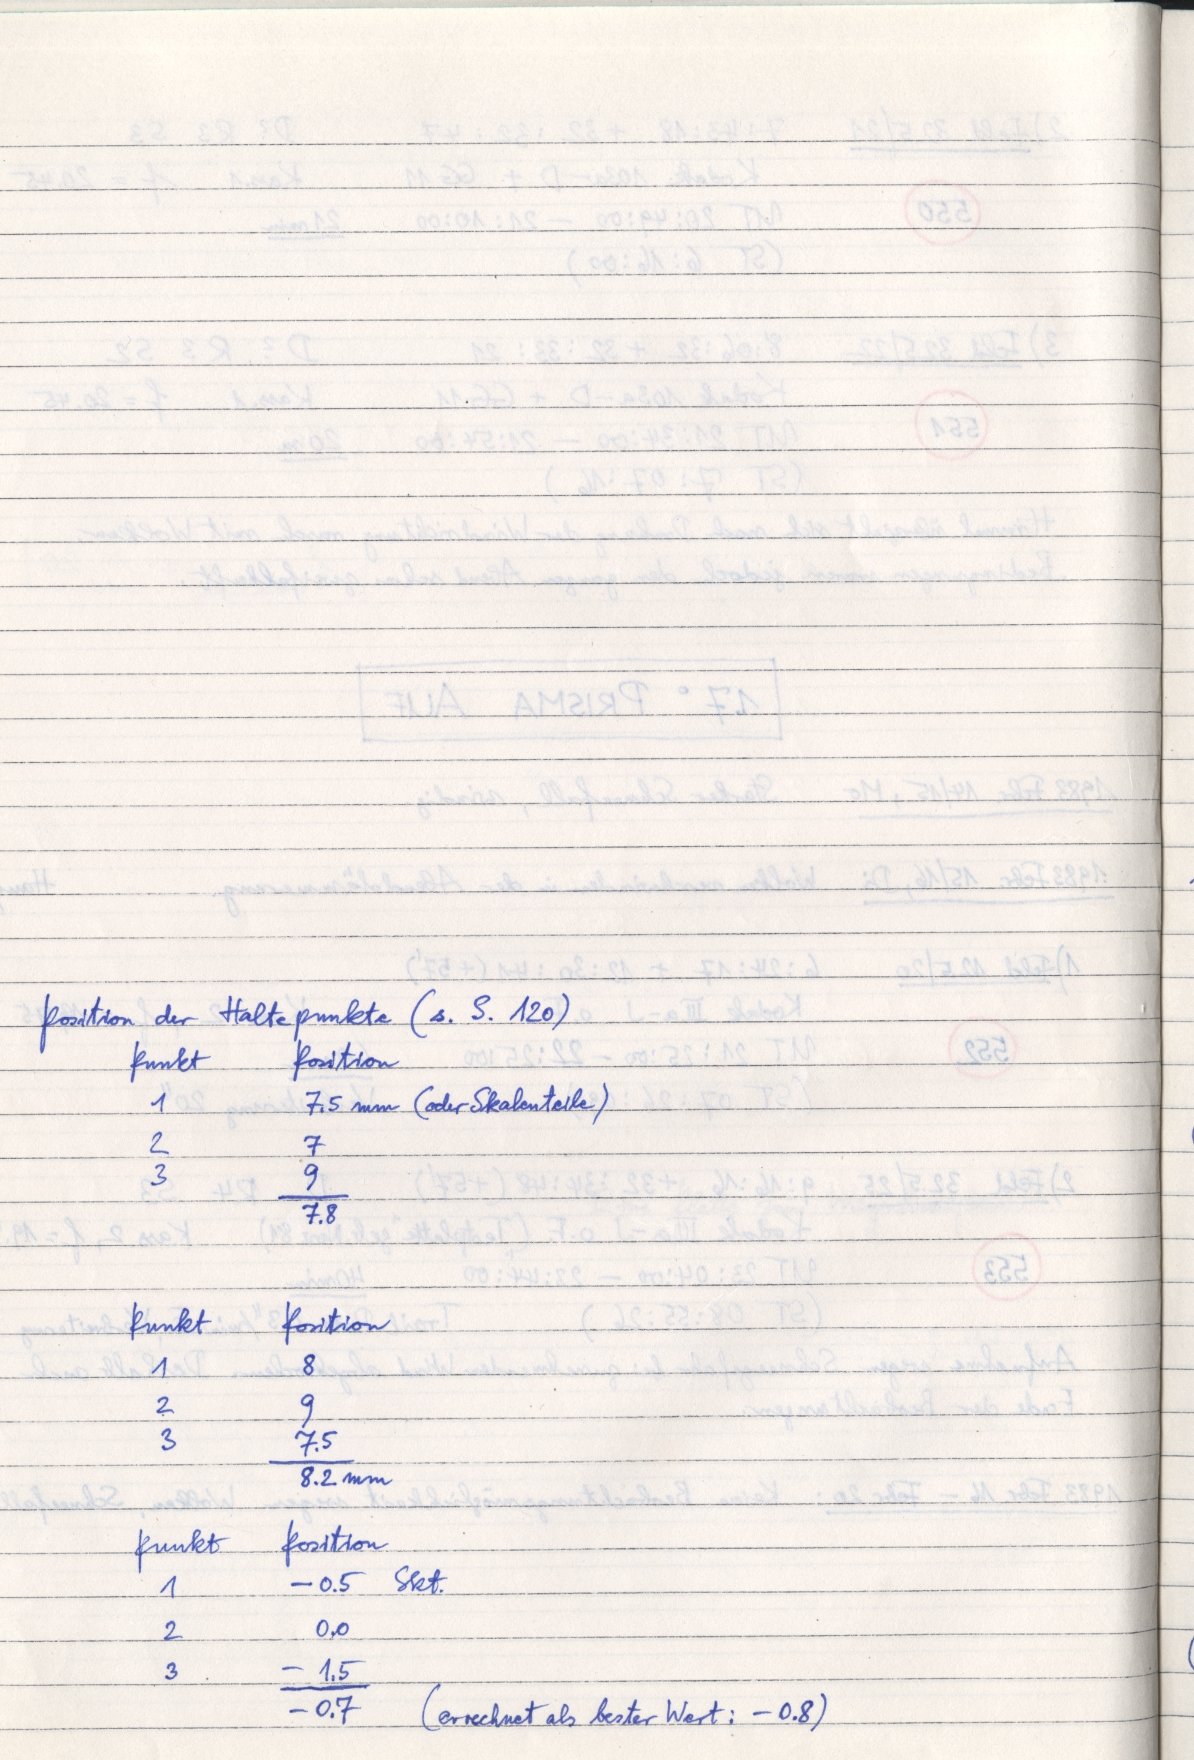 Position der Haltepunkte (s. S. 120)
Punkt Position
1 7.5 mm (oder Skalenteile)
2 7
3 9
7.8
Punkt Position
1 8
2 9
3 7.5
8.2 mm
Punkt Position
1 -0.5 Skt.
2 0.0
3 -1.5
-0.7 (errechnet als bester Wert: -0.8)